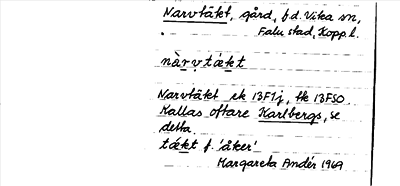 Narvtäkt, gård, f.d. Vika sn,
Falu stad, Kopp.l.
nàrvtækt
Narvtäkt ek 13F1j, tk 13F50.
Kallas oftare Karlbergs, se
detta.
tækt f. 'åker'
Margareta Andér 1969